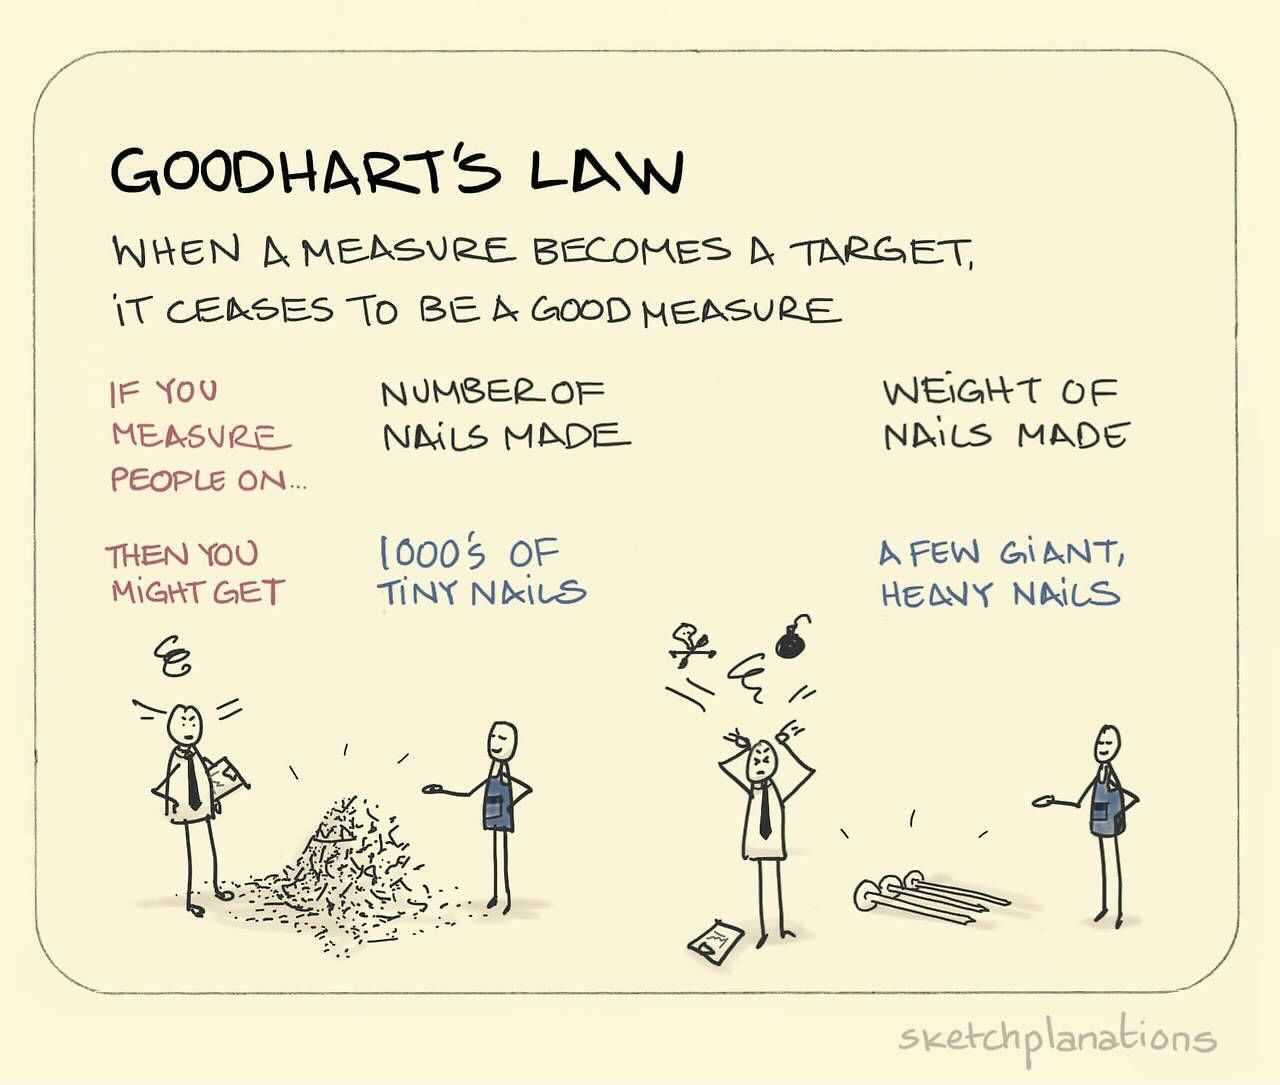 GOODHART'S LAW
WHEN A MEASURE BECOMES A TARGET,
IT CEASES TO BE A GOOD MEASURE
IF YOU
MEASURE
PEOPLE ON...
NUMBER OF
NAILS MADE
WEIGHT OF
NAILS MADE
THEN YOU
MIGHT GET
1000'S OF
TINY NAILS
A FEW GIANT,
HEAVY NAILS
sketchplanations